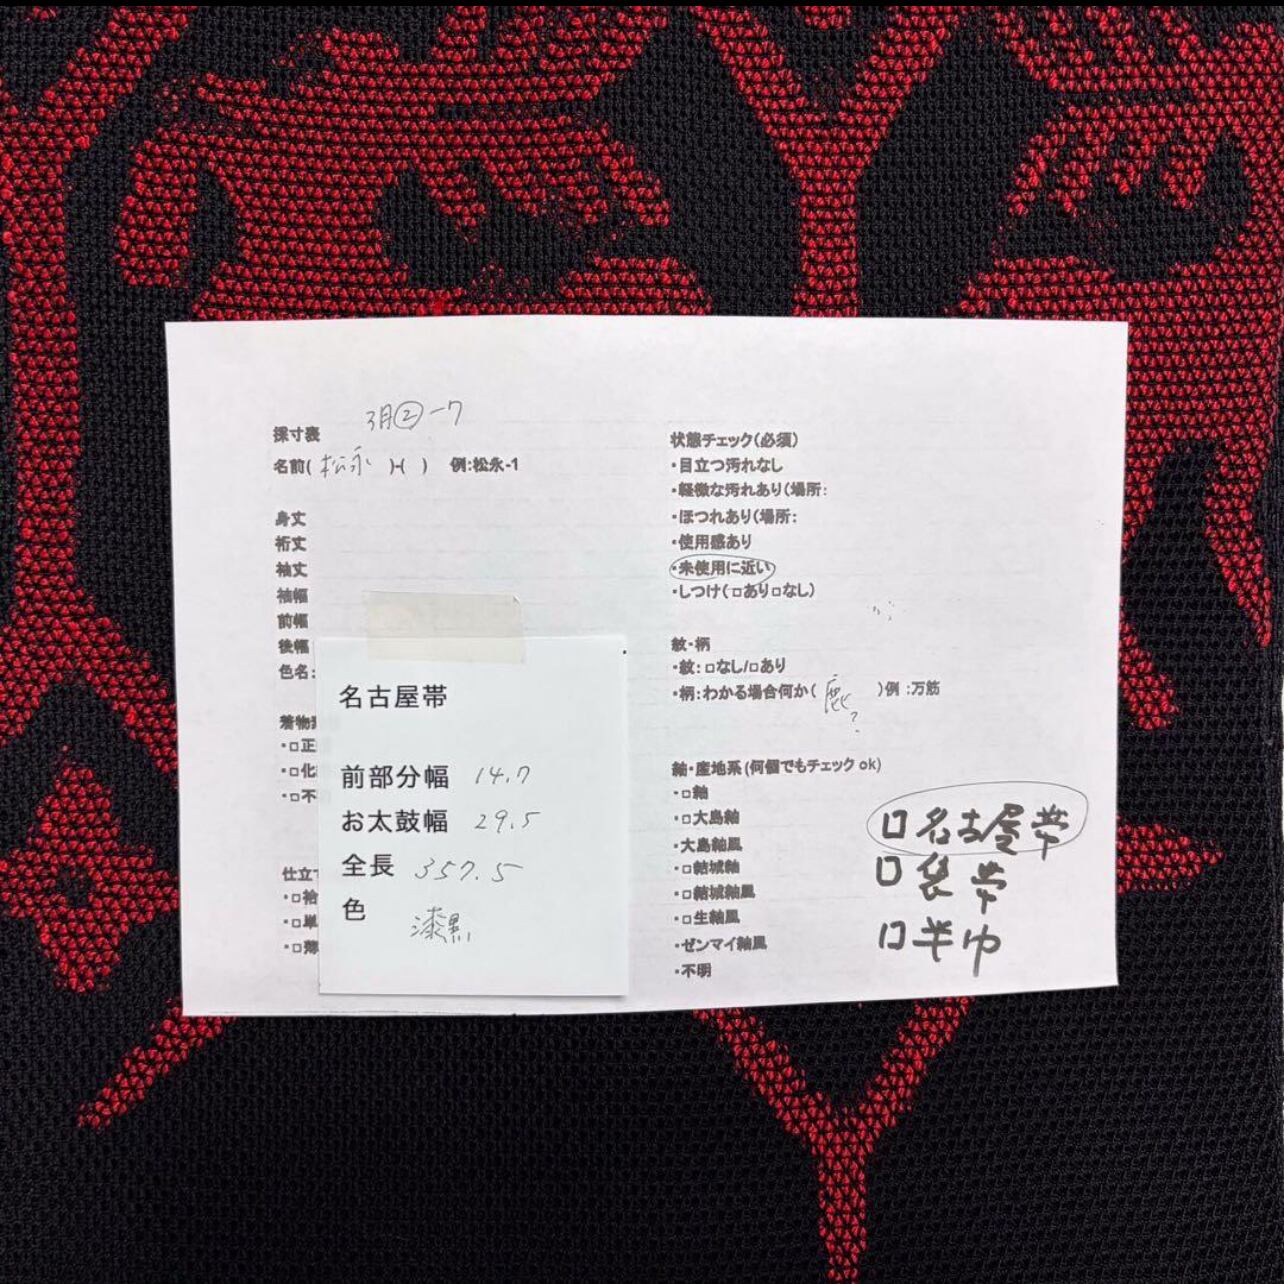 採寸表
3月②-7
名前( 松永 )-( ) 例:松永-1
身丈
裄丈
袖丈
袖幅
前幅
後幅
色名:
着物
・□正
・□化
・□不
仕立て
・□袷
・□単
・□薄
名古屋帯
前部分幅 14.7
お太鼓幅 29.5
全長 357.5
色 漆黒
状態チェック(必須)
・目立つ汚れなし
・軽微な汚れあり(場所:
・ほつれあり(場所:
・使用感あり
・未使用に近い
・しつけ(□あり□なし)
紋・柄
・紋:□なし/□あり
・柄:わかる場合何か( 鹿? )例:万筋
紬・産地系(何個でもチェックok)
・□紬
・□大島紬
・大島紬風
・□結城紬
・□結城紬風
・□生紬風
・ゼンマイ紬風
・不明
□名古屋帯
□袋帯
□半巾